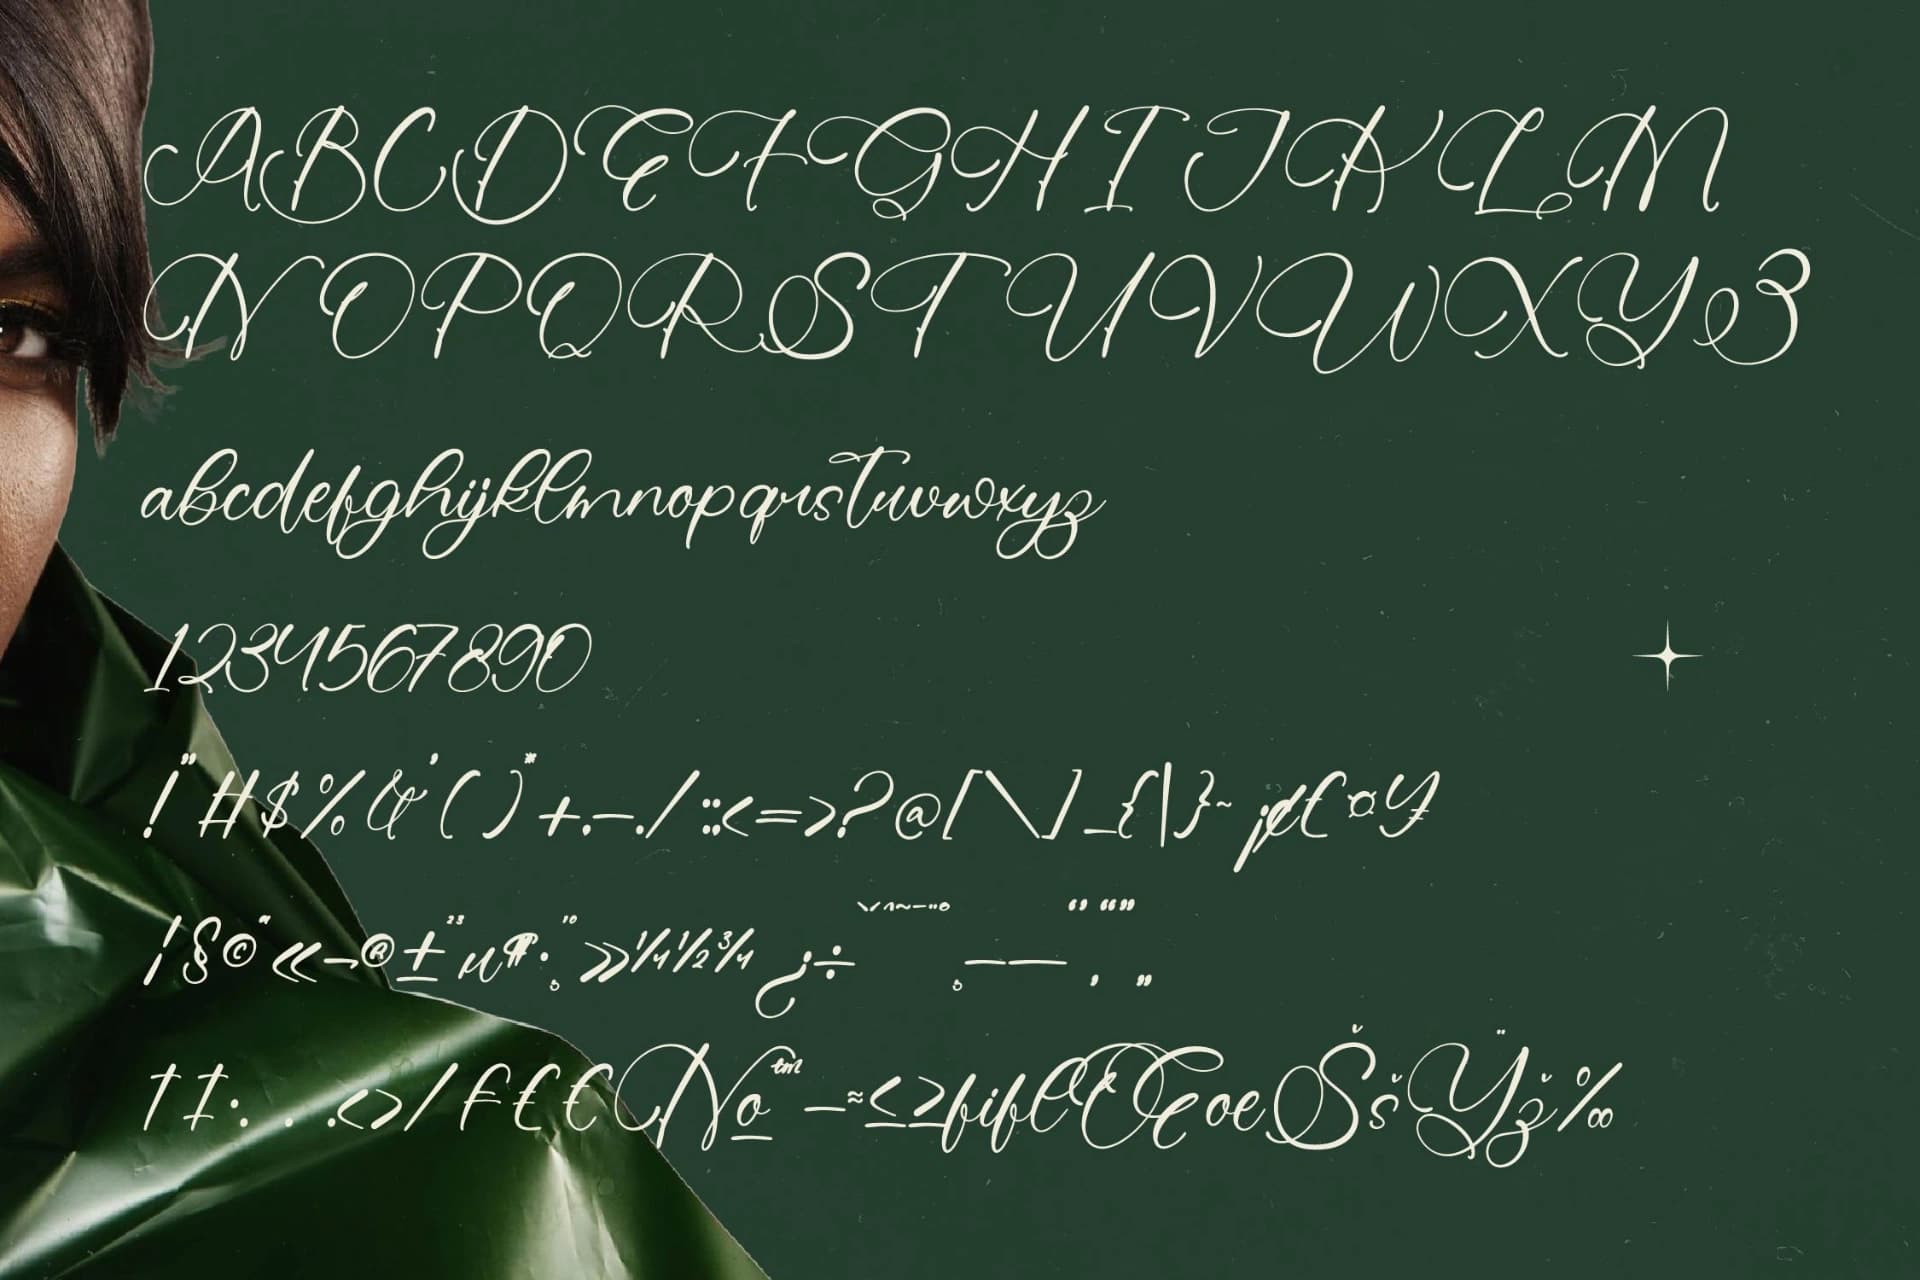 ABCDEFGHIJKLM
NOPQRSTUVWXYZ
abcdefghijklmnopqrstuvwxyz
1234567890
!"#$%&'()*+,-./:;<=>?@[\]_{|}~¡¢£¤¥
¦§©¨«¬®±²³µ¶·¸¹º»¼½¾¿÷ˋˇˆ˜¯¨˚¸–—‘’‚“”„
†‡•...‹›⁄ƒ££№™−≈≤≥fiflŒœŠšŸž‰